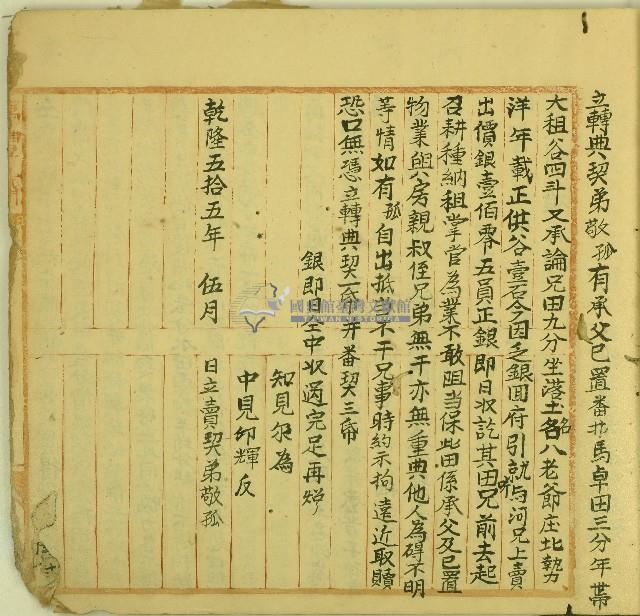 立轉典契弟敬孤有承父已置番北馬卓田三分年帶
大租谷四斗又承論兄田九分坐港土名八老爺庄北執
洋年載正供谷壹石今因乏銀回府引就與河兄上賣
出價銀壹佰零五員正銀即日收訖其田兄前去起
召耕種納租掌管為業不敢阻当保此田係承父及已置
物業與房親叔侄兄弟無干亦無重典他人為碍不明
等情如有孤自出抵不干兄事時約示拘遠近取贖
恐口無憑立轉典契一帋并番契三帋
銀即日全中收過完足再炤
知見
中見卯輝反
乾隆五拾五年 伍月 日立賣契弟敬孤
國館臺灣文獻館
TAIWAN HISTORICA